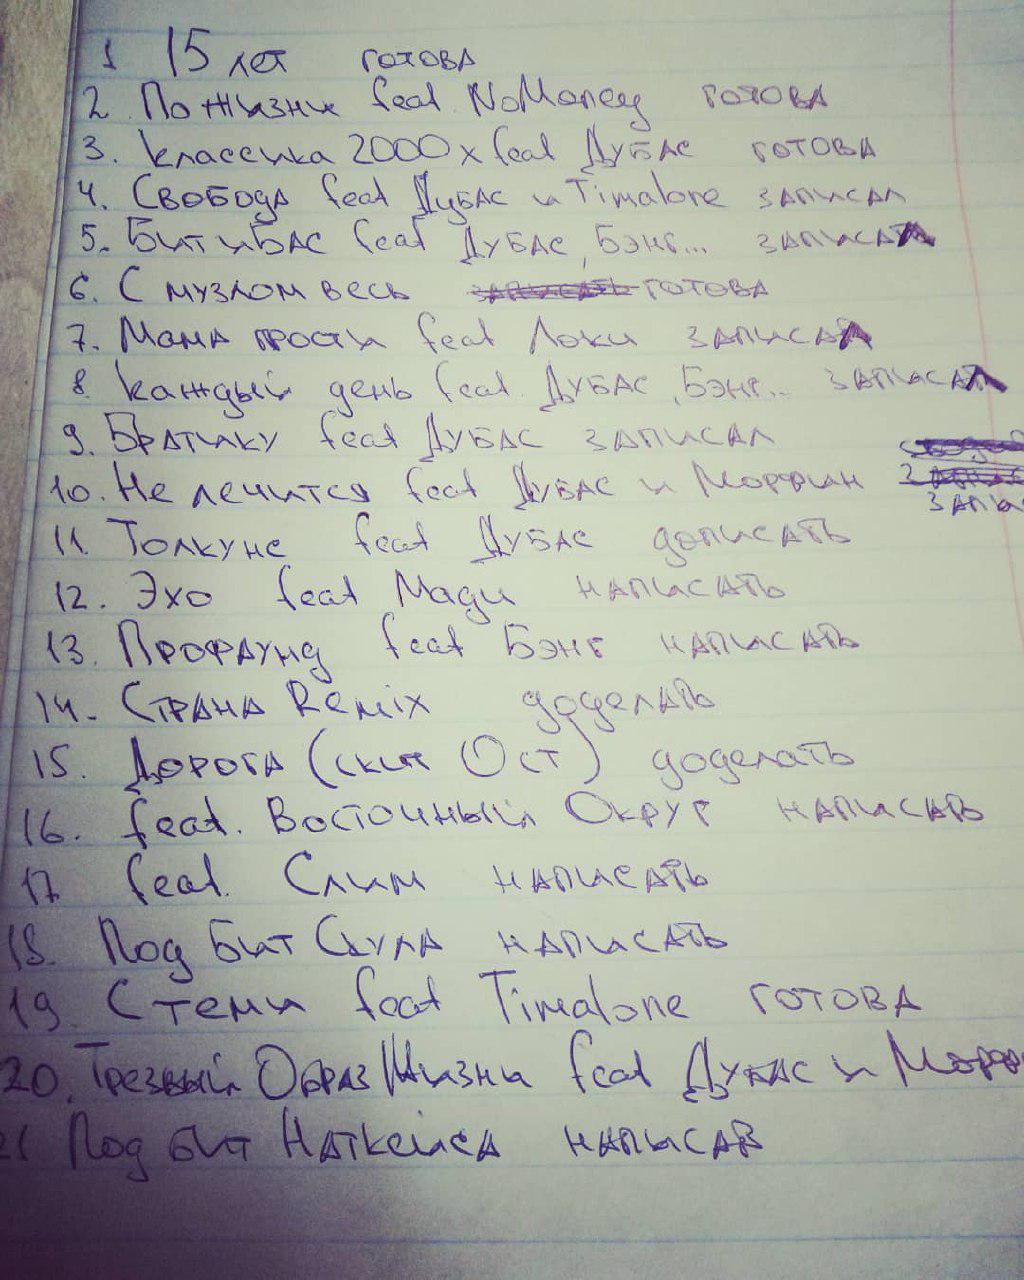 1 15 лет готова
2. По жизни feat. NoMoney готова
3. Классика 2000х feat Дубас готова
4. Свобода feat Дубас и Timalone записал
5. Бит и Бас feat Дубас, Бэнг... записал
6. С музлом весь записать готова
7. Мама прости feat Локи записал
8. Каждый день feat. Дубас, Бэнг... записал
9. Братику feat Дубас записал
10. Не лечится feat Дубас и Морфин
запис
11. Толкуне feat Дубас дописать
12. Эхо feat Мади написать
13. Профаунд feat Бэнг написать
14. Страна Remix доделать
15. Дорога (скит Ост) доделать
16. feat. Восточный Округ написать
17 feat. Слим написать
18. Под бит Скула написать
19. Стеми feat Timalone готова
20. Трезвый Образ Жизни feat Дубас и Морф
21 Под бит Наткейса написав